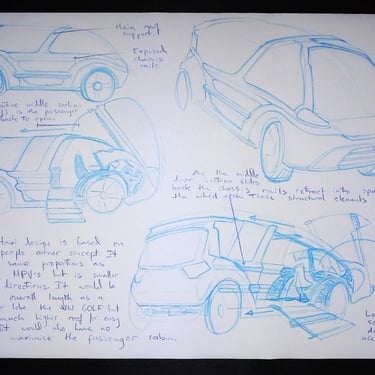 Main roof
support.
Exposed
chassis
rails
middle section
is the passenger
to open.
As the middle
door section slides
back the chassis rails retract into
the wheel arch. These structural elements
taxi design is based on
people carrier concept. It
same proportions as
MPV-s but is smaller
directions. It would be
overall length as a
like the VW GOLF but
much higher roof to easy
It would also have no
maximise the passenger cabin.